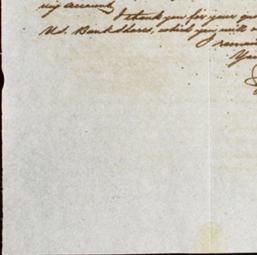 my account,
I thank you for your
U.S. Bank Shares, which you will
I remain
You